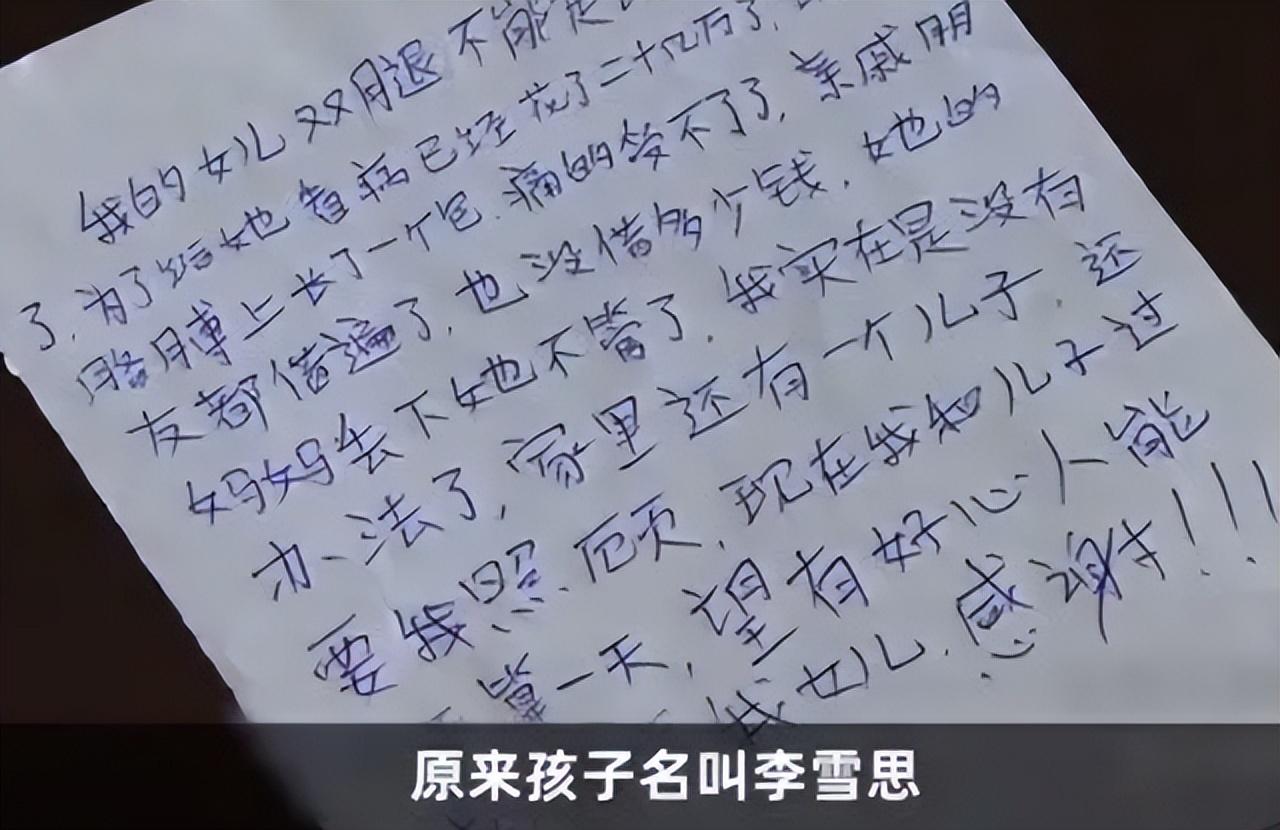 我的女儿双腿不能走
了,为了给她查病已经花了二十几万了,
胳膊上长了一个包,痛的受不了了,亲戚朋
友都借遍了,也没借多少钱,她的
妈妈丢下她也不管了,我实在是没有
办法了,家里还有一个儿子,还
要我照顾,现在我和儿子过
算一天,望有好心人能
我女儿,感谢!!!
原来孩子名叫李雪思